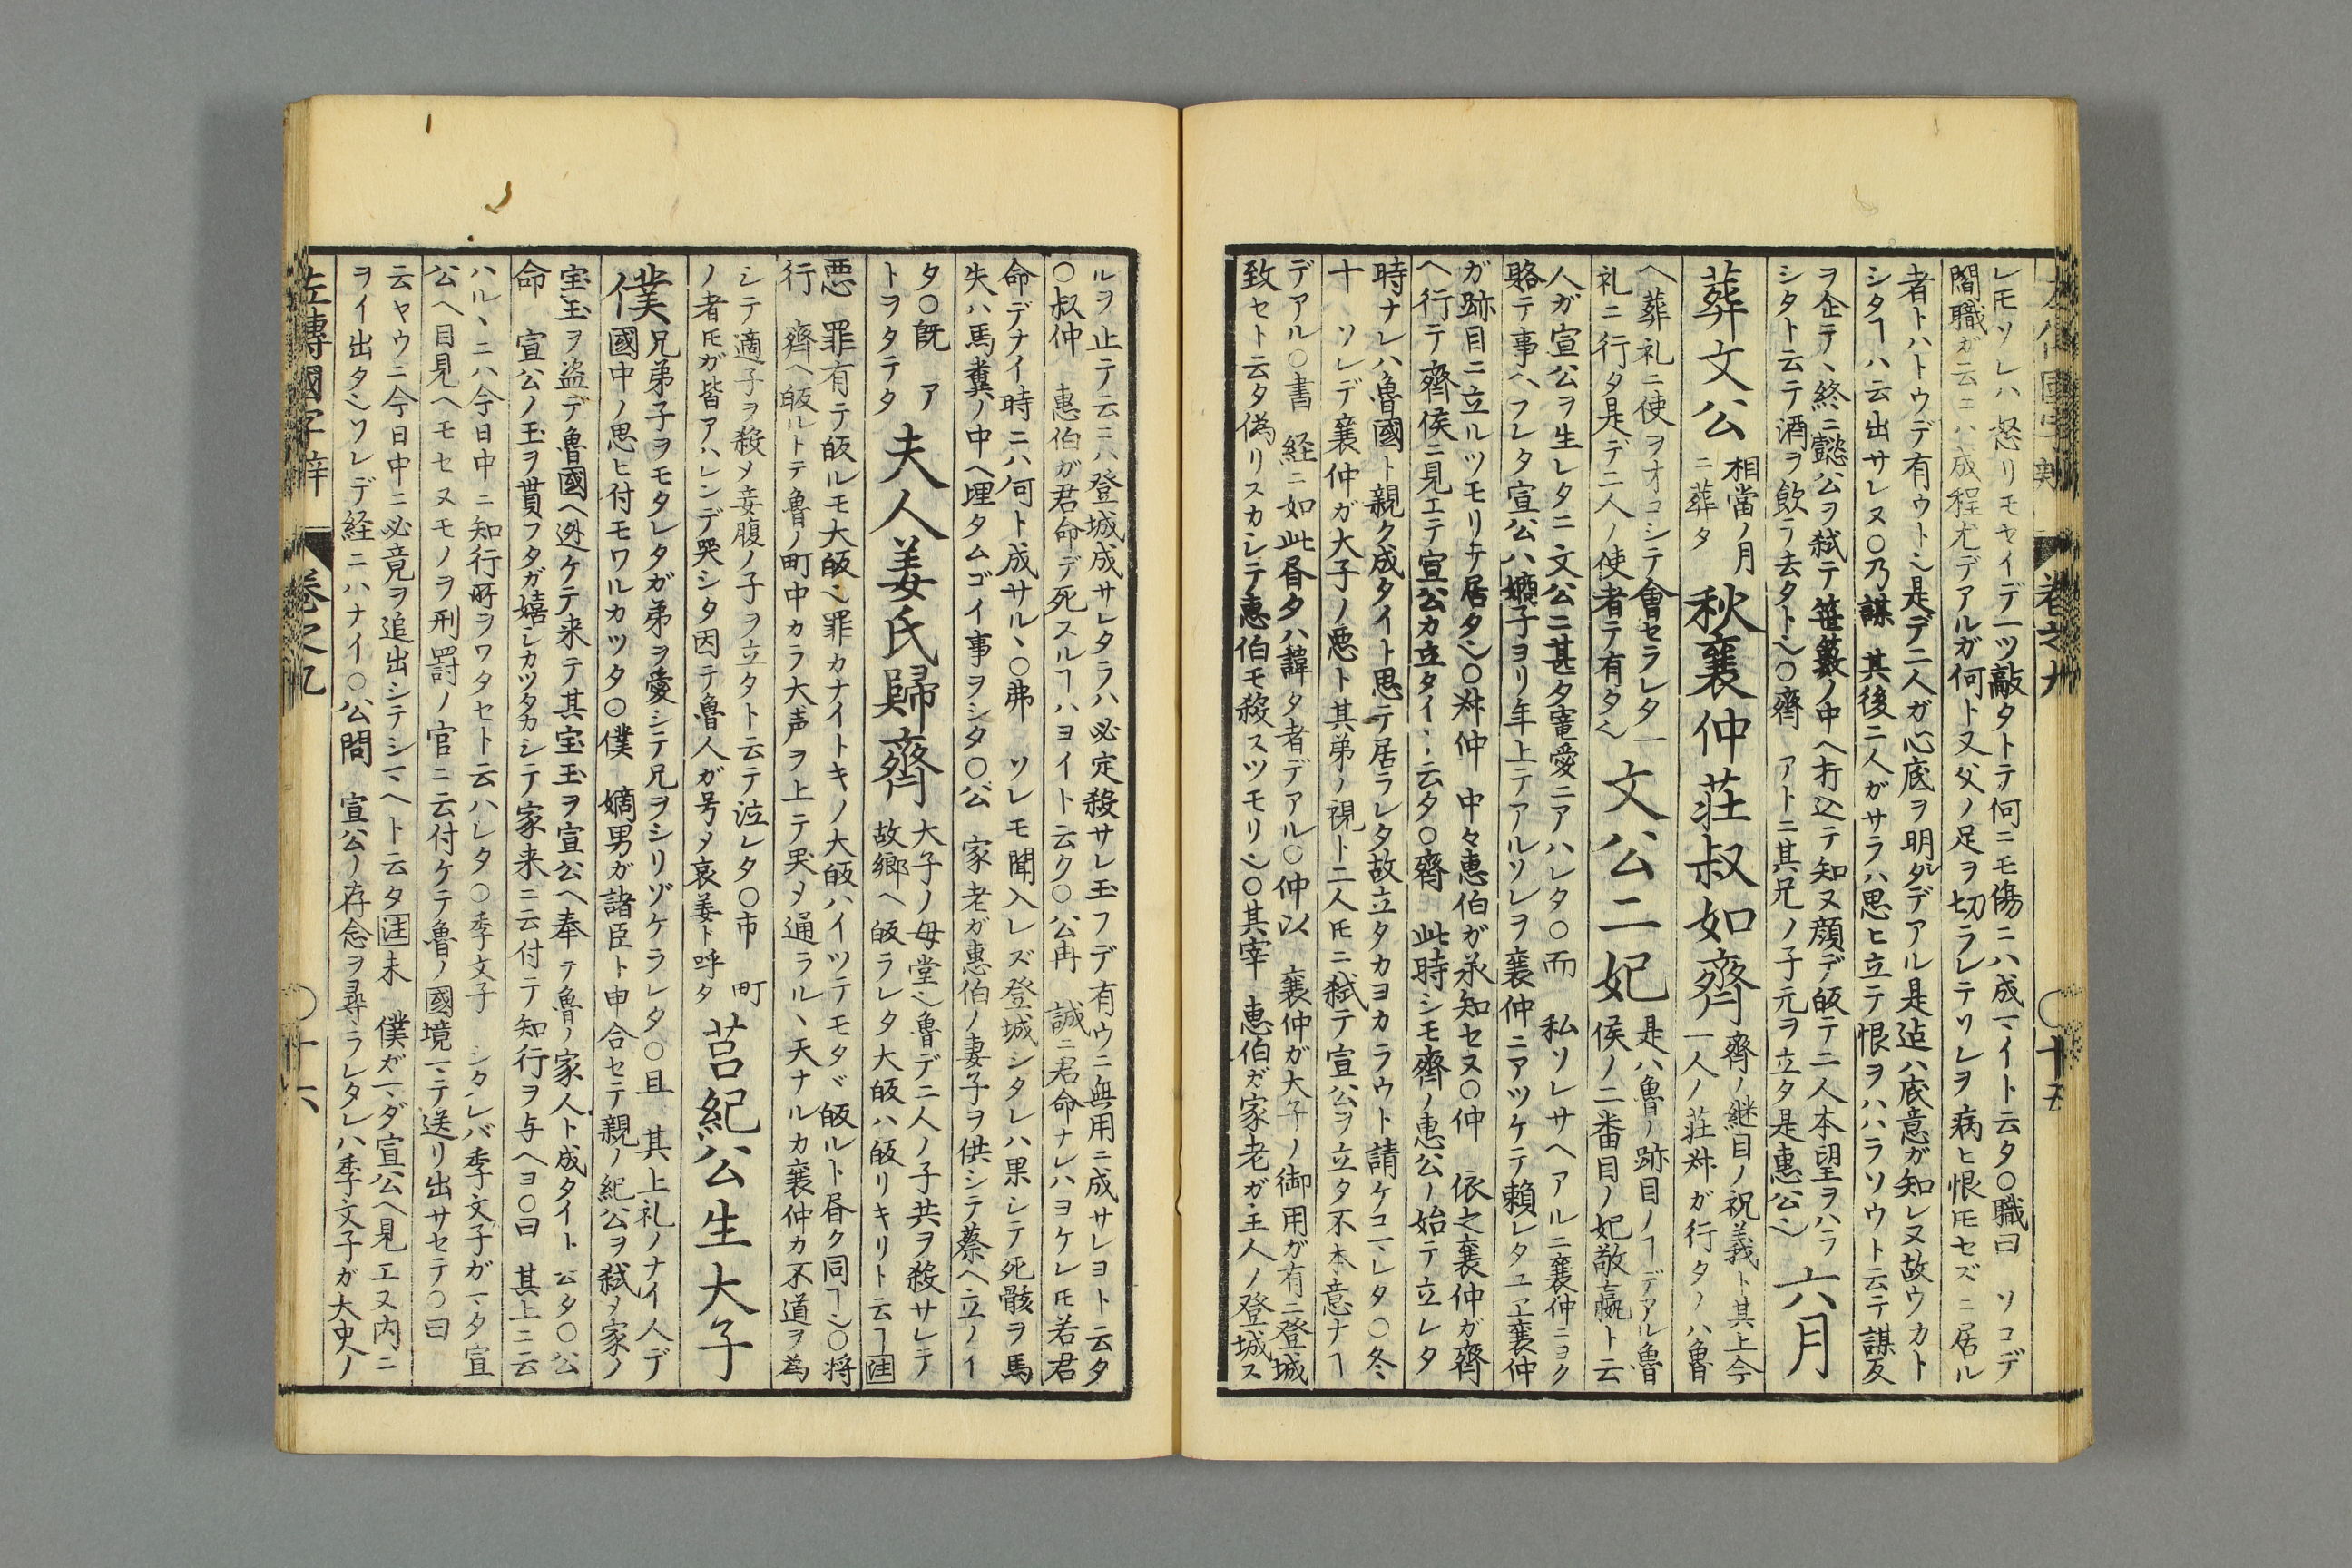 レモソレハ怒リモセイデ一ツ敲タトテ何ニモ傷ニハ成マイト云タ〇職曰　ソコデ
閻職ガ云ニハ成程尤デアルガ何ト又父ノ足ヲ切ラレテソレヲ病ヒ恨モセズニ居ル
者トハトウデ有ウトシ是デ二人ガ心底ヲ明ダルデアル是迠ハ底意ガ知レヌ故ウカト
シタヿハ云出サレヌ〇乃謀　其後ニ人ガサラハ思ヒ立テ恨ヲハラソウト云テ謀反
ヲ企テ、終ニ懿公ヲ弑テ笹籔ノ中ヘ打込テ知ヌ顔デ皈テ二人本望ヲハラ
シタト云テ酒ヲ飲ラ去タトシ〇齊　アトニ其兄ノ子元ヲ立タ是惠公シ
六月
葬文公
相當ノ月
ニ葬タ
秋襄仲荘叔如齊
齊ノ継目ノ祝義ト其上今
一人ノ荘叔ガ行タノハ魯
ヘ葬礼ニ使ヲオコシテ會セラレタ一
礼ニ行タ是デ二人ノ使者テ有タシ
文公二妃
是ハ魯ノ跡目ノヿデアル魯
侯ノ二番目ノ妃敬嬴ト云
人ガ宣公ヲ生レタニ文公ニ甚タ寵愛ニアハレタ〇而　私ソレサヘアルニ襄仲ニヨク
賂テ事ヘフレタ宣公ハ嫡子ヨリ年上テアルソレヲ襄仲ニアツケテ頼レタユヱ襄仲
ガ跡目ニ立ルツモリテ居タシ〇叔仲　中々惠伯ガ承知セヌ〇仲　依之襄仲ガ齊
ヘ行テ齊侯ニ見エテ宣公カ立タイ、云タ〇齊　此時シモ齊ノ惠公ノ始テ立レタ
時ナレハ魯國ト親ク成タイト思テ居ラレタ故立タカヨカラウト請ケコマレタ〇冬
十　ソレデ襄仲ガ大子ノ惡ト其弟ノ視ト二人モニ弑テ宣公ヲ立タ不本意ナヿ
デアル〇書　経ニ如此昏タハ諱タ者デアル〇仲以　襄仲ガ大子ノ御用ガ有ニ登城
致セト云タ偽リスカシテ惠伯モ殺スツモリシ〇其宰　惠伯ガ家老ガ主人ノ登城ス
卷之九
十五
ルヲ止テ云ニハ登城成サレタラハ必定殺サレ玉フデ有ウニ無用ニ成サレヨト云タ
〇叔仲　惠伯ガ君命デ死スルヿハヨイト云ク〇公冉　誠ニ君命ナレハヨケレモ若君
命デナイ時ニハ何ト成サル、〇弗　ソレモ聞入レズ登城シタレハ果シテ死骸ヲ馬
失ハ馬糞ノ中ヘ埋タムゴイ事ヲシタ〇公　家老ガ惠伯ノ妻子ヲ供シテ蔡ヘ立ノイ
タ〇既　ア
トヲタテタ
夫人姜氏歸齊
大子ノ母堂シ魯デ二人ノ子共ヲ殺サレテ
故郷ヘ皈ラレタ大皈ハ皈リキリト云ヿ注
惡　罪有テ皈ルモ大皈シ罪カナイトキノ大皈ハイツテモタヾ皈ルト昏ク同ヿシ〇将
行　齊ヘ皈ルトテ魯ノ町中カラ大声ヲ上テ哭メ通ラル、天ナルカ襄仲カ不道ヲ為
シテ適子ヲ殺メ妾腹ノ子ヲ立タト云テ泣レタ〇市　町
ノ者モガ皆アハレンデ哭シタ因テ魯人ガ号メ哀姜ト呼タ
莒紀公生大子
僕
兄弟子ヲモタレタガ弟ヲ愛シテ兄ヲシリゾケラレタ〇且　其上礼ノナイ人デ
國中ノ思ヒ付モワルカツタ〇僕　嫡男ガ諸臣ト申合セテ親ノ紀公ヲ弑メ家ノ
宝玉ヲ盗デ魯國ヘ迯ケテ来テ其宝玉ヲ宣公ヘ奉テ魯ノ家人ト成タイト云タ〇公
命　宣公ノ玉ヲ貰フタガ嬉シカツタカシテ家来ニ云付テ知行ヲ与ヘヨ〇曰　其上ニ云
ハル、ニハ今日中ニ知行所ヲワタセト云ハレタ〇季文子　シタレバ季文子ガマタ宣
公ヘ目見ヘモセヌモノヲ刑罰ノ官ニ云付ケテ魯ノ國境マテ送リ出サセテ〇曰
云ヤウニ今日中ニ必竟ヲ追出シテシマヘト云タ注未　僕ガマダ宣公ヘ見エヌ内ニ
ヲイ出タシソレデ経ニハナイ〇公問　宣公ノ存念ヲ尋ラレタレハ季文子ガ大史ノ
左傳國字辯　卷之九
十六